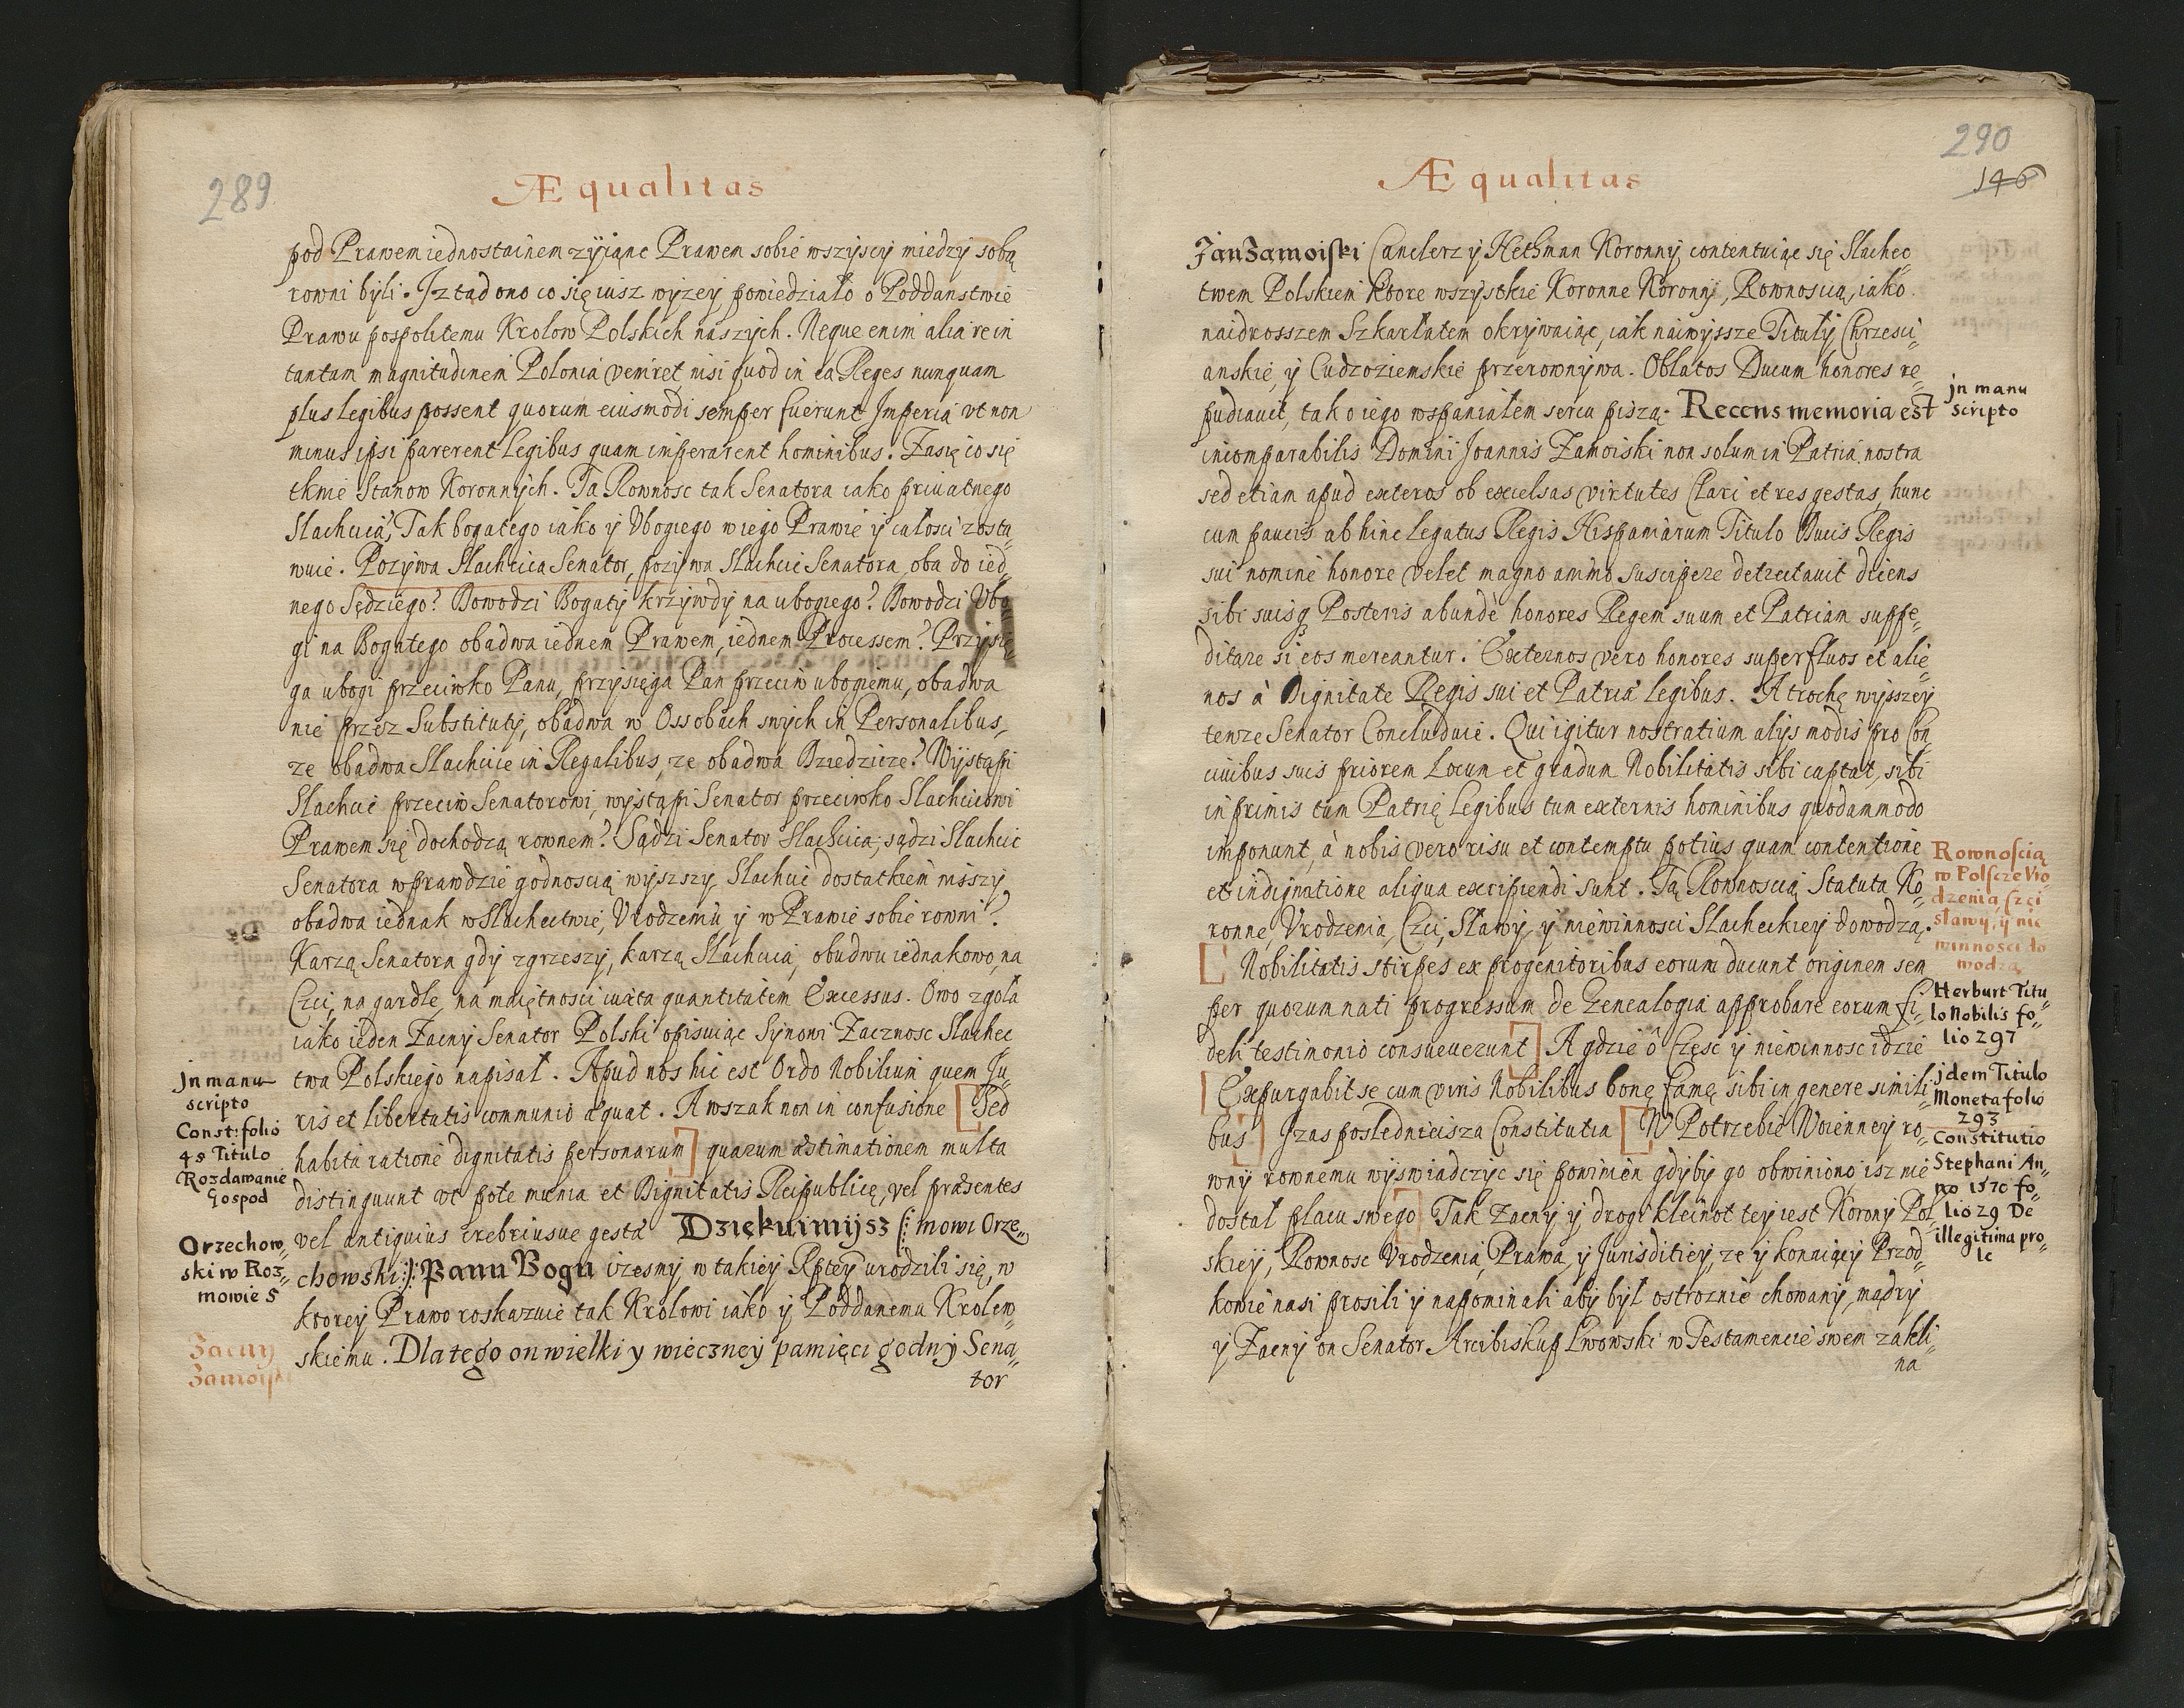 289
Æqualitas
pod Prawem iednostainem zÿiąnc Prawem sobie wszÿscÿ miedzÿ sobą
rowni bÿli. Iztad ono co się iusz wÿzeÿ powiedziało o Poddanstwie
Prawu pospolitemu Krolow Polskich naszÿch. Neque enim alia re in
tantam magnitudinem Polonia veniret, nisi quod in ea Reges nunquam
plus legibus possent quorum eiusmodi semper fuerunt Imperia vt non
minus ipsi parerent Legibus quam imperarent hominibus. Zasię co się
tknie Stanow Koronnÿch. Ta Rownosc tak Senatora iako priuatnego
Slachcica, Tak bogatego iako ÿ Vbogiego w iego Prawie ÿ całosci zosta„
wuie. Pozÿwa Slachcica Senator, pozÿwa Slachcic Senatora, oba do ied„
nego Sędziego? Dowodzi Bogatÿ krzÿwdÿ na ubogiego? Dowodzi Vbo„
gi na Bogatego obadwa iednem Prawem, iednem Processem? Przÿsię„
ga ubogi przeciwko Panu, przÿsięga Pan przeciw ubogiemu, obadwa
nie przez Substitutÿ, obadwa w Ossobach swÿch in Personalibus,
ze obadwa Slachcice in Regalibus, ze obadwa Dziedzice? Wÿstąpi
Slachcic przeciw Senatorowi, wÿstąpi Senator przeciwko Slachcicowi
Prawem się dochodzą rownem? Sądzi Senator Slachcica, sądzi Slachcic
Senatora wprawdzie godnoscią wÿszszÿ, Slachcic dostatkiem nisszÿ
obadwa iednak w Slachectwie, Vrodzeniu ÿ w Prawie sobie rowni?
Karzą Senatora gdÿ zgrzeszÿ, karzą Slachcica, obudwu iednakowo, na
Czci, na gardle, na maiętnosci iuxta quantitatem Excessus. Owo zgoła
iako ieden Zacnÿ Senator Polski opisuiąc Sÿnowi Zacznosc Slachec
twa Polskiego napisał. Apud nos hic est Ordo Nobilium quem Iu„
ris et libertatis communio æquat. A wszak non in confusione [Sed
habita ratione dignitatis personarum] quarum æstimationem multa
distinguunt vt pote munia et Dignitatis Reipublicę, vel præsentes
vel antiquius crebriusue gesta Dziękuimÿsz (: mowi Orze„
chowski :) Panu Bogu izesmÿ w takieÿ Rpteÿ urodzili się, w
ktoreÿ Prawo roskazuie tak Krolowi iako ÿ Poddanemu Krolew„
skiemu. Dlatego on wielki y wieczney pamięci godnÿ Sena„
tor
In manu
scripto
Const: folio
45 Titulo
Rozdawanie
Gospod
Orzechow„
ski w Roz„
mowie 5
Zacny
Zamoiski
290
146
Æqualitas
Jan Zamoiski Canclerz ÿ Hethman Koronnÿ contentuiąc się Slachec„
twem Polskiem ktore wszÿstkie Koronne Koronÿ, Rownoscią, iako
naidrosszem Szkarłatem okrÿwaiąc, iak naiwÿssze Titulÿ Chrzesci„
anskie, ÿ Cudzoziemskie przerownÿwa. Oblatos Ducum honores re„
pudiauit, tak o iego wspaniałem sercu piszą. Recens memoria est
incomparabilis Domini Joannis Zamoiski non solum in Patria nostra
sed etiam apud exteros ob excelsas virtutes Clari et res gestas, hunc
cum paucis ab hinc Legatus Regis Hispaniarum Titulo Ducis Regis
sui nomine honore velet magno animo suscipere detrectauit dicens
sibi suisq Posteris abundè honores Regem suum et Patriam suppe„
ditare si eos mereantur. Externos vero honores superfluos et alie„
nos à Dignitate Regis sui et Patria legibus. A trochę wÿsszeÿ
tenze Senator Concluduie. Qui igitur nostratium alijs modis pro Con„
ciuibus suis priorem Locum et gradum Nobilitatis sibi captat, sibi
inprimis tum Patrię Legibus tum externis hominibus quodammodo
imponunt, à nobis vero risu et contemptu potius quam contentione
et indignatione aliqua excipiendi sunt. Tą Rownoscią Statuta Ko„
ronne, Vrodzenia, Czci, Sławÿ, ÿ niewinnosci Slacheckieÿ dowodzą.
[Nobilitatis stirpes ex progenitoribus eorum ducunt originem sem
per quorum nati progressum de Genealogia approbare eorum fi„
deli testimonio consueuerunt] A gdzie o Częsc ÿ niewinnosc idzie
[Expurgabit se cum viris Nobilibus bonę famę sibi in genere simili„
bus] Izas posledniejsza Constitutia [W Potrzebie Woienneÿ ro„
wnÿ rownemu wÿswiadczÿc się powinien gdÿbÿ go obwiniono isz nie
dostał placu swego] Tak Zacnÿ ÿ drogi kleinot teÿ iest Koronÿ Pol„
skieÿ, Rownosc Vrodzenia, Prawa, ÿ Jurisditieÿ, ze ÿ konaiąceÿ Przod„
kowie nasi prosili ÿ napominali abÿ bÿł ostroznie chowanÿ, mądrÿ
ÿ Zacnÿ on Senator Arcibiskup Lwowski w Testamencie swem zakli„
na
In manu
scripto
Rownoscią
w Polscze Vro„
dzenia, Czci
sławy, ÿ nie
winnosci do
wodzą
Herburt Titu„
lo Nobilis fo„
lio 297
jdem Titulo
Moneta folio
293
Constitutio
Stephani An„
no 1570 fo„
lio 29 De
illegitima pro„
le